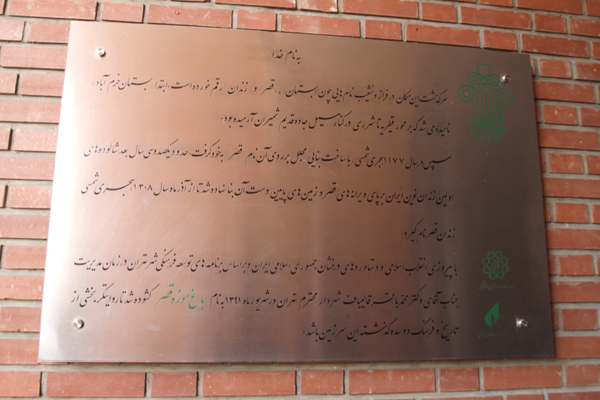 به نام خدا
سرگذشت این مکان در فراز و نشیب نام هایی چون بستان ، قصر و زندان رقم خورده است ، ابتدا بستان خرم آباد
نامیده می شد که بر محور قیطریه تا شهر ری در کنار مسیل جاده قدیم شمیران آرمیده بود.
سپس در سال ۱۱۷۷ هجری شمسی، با ساخت بنایی مجلل بر روی آن نام قصر به خود گرفت. حدود یکصد و سی سال بعد شالوده های
اولین زندان نوین ایران بر پای ویرانه های قصر و زمین های پایین دست آن بنا نهاده شد تا از آذرماه سال ۱۳۰۸ هجری شمسی
زندان قصر نام گیرد.
با پیروزی انقلاب اسلامی و دستاوردهای درخشان جمهوری اسلامی ایران و بر اساس برنامه های توسعه فرهنگی شهر تهران در زمان مدیریت
جناب آقای دکتر محمد باقر قالیباف شهردار محترم تهران در شهریور ماه ۱۳۹۱ به نام باغ موزه قصر گشوده شد تا روایتگر بخشی از
تاریخ و فرهنگ دو سده گذشته این سرزمین باشد.